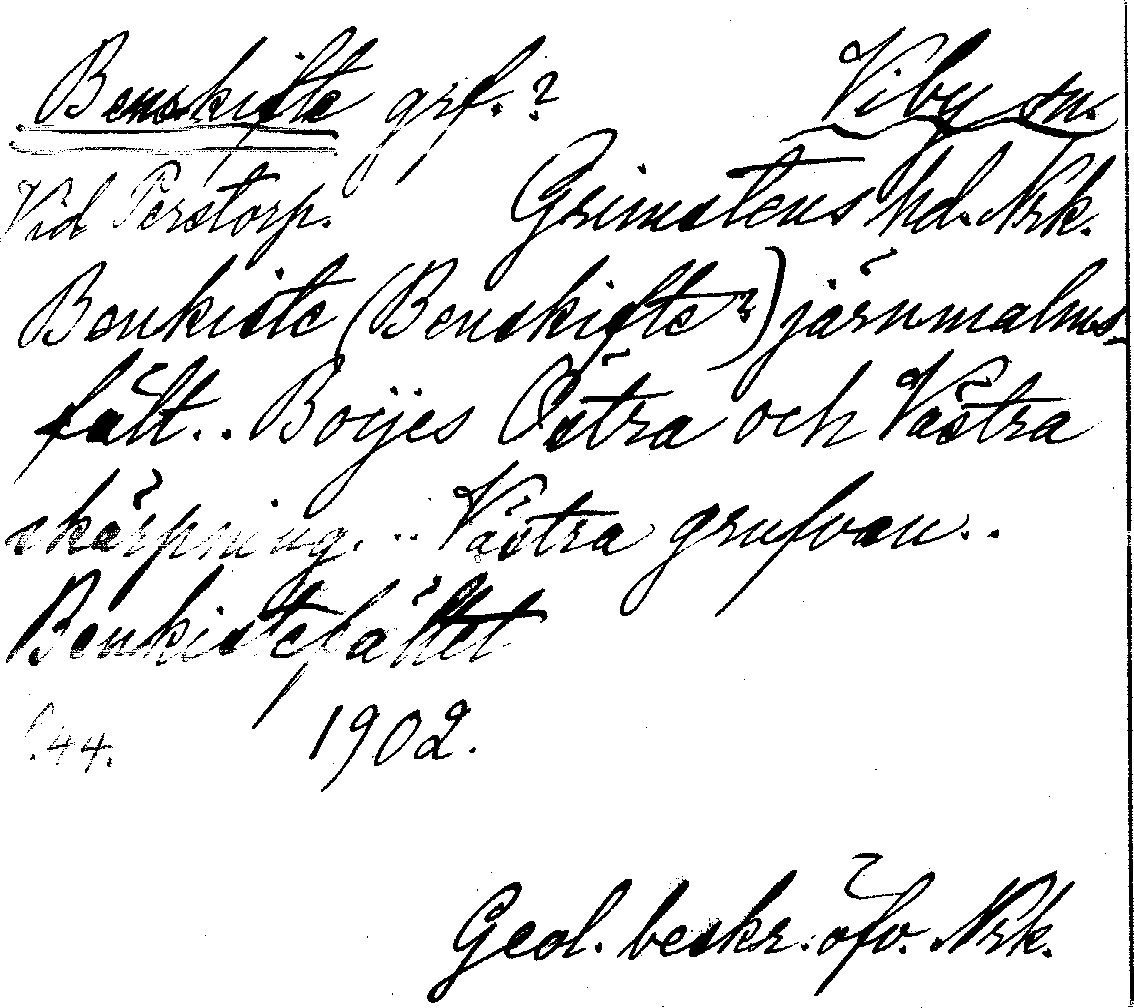 Benskifte grf.? Viby sn.
Vid Perstorp. Grimstens hd. Nrk.
Benkiste (Benskifte?) järnmalms-
fält.. Boijes Östra och Västra
skärpning... Västra grufvan..
Benkistefältet
s.44. 1902.
Geol. beskr. öfv. Nrk.